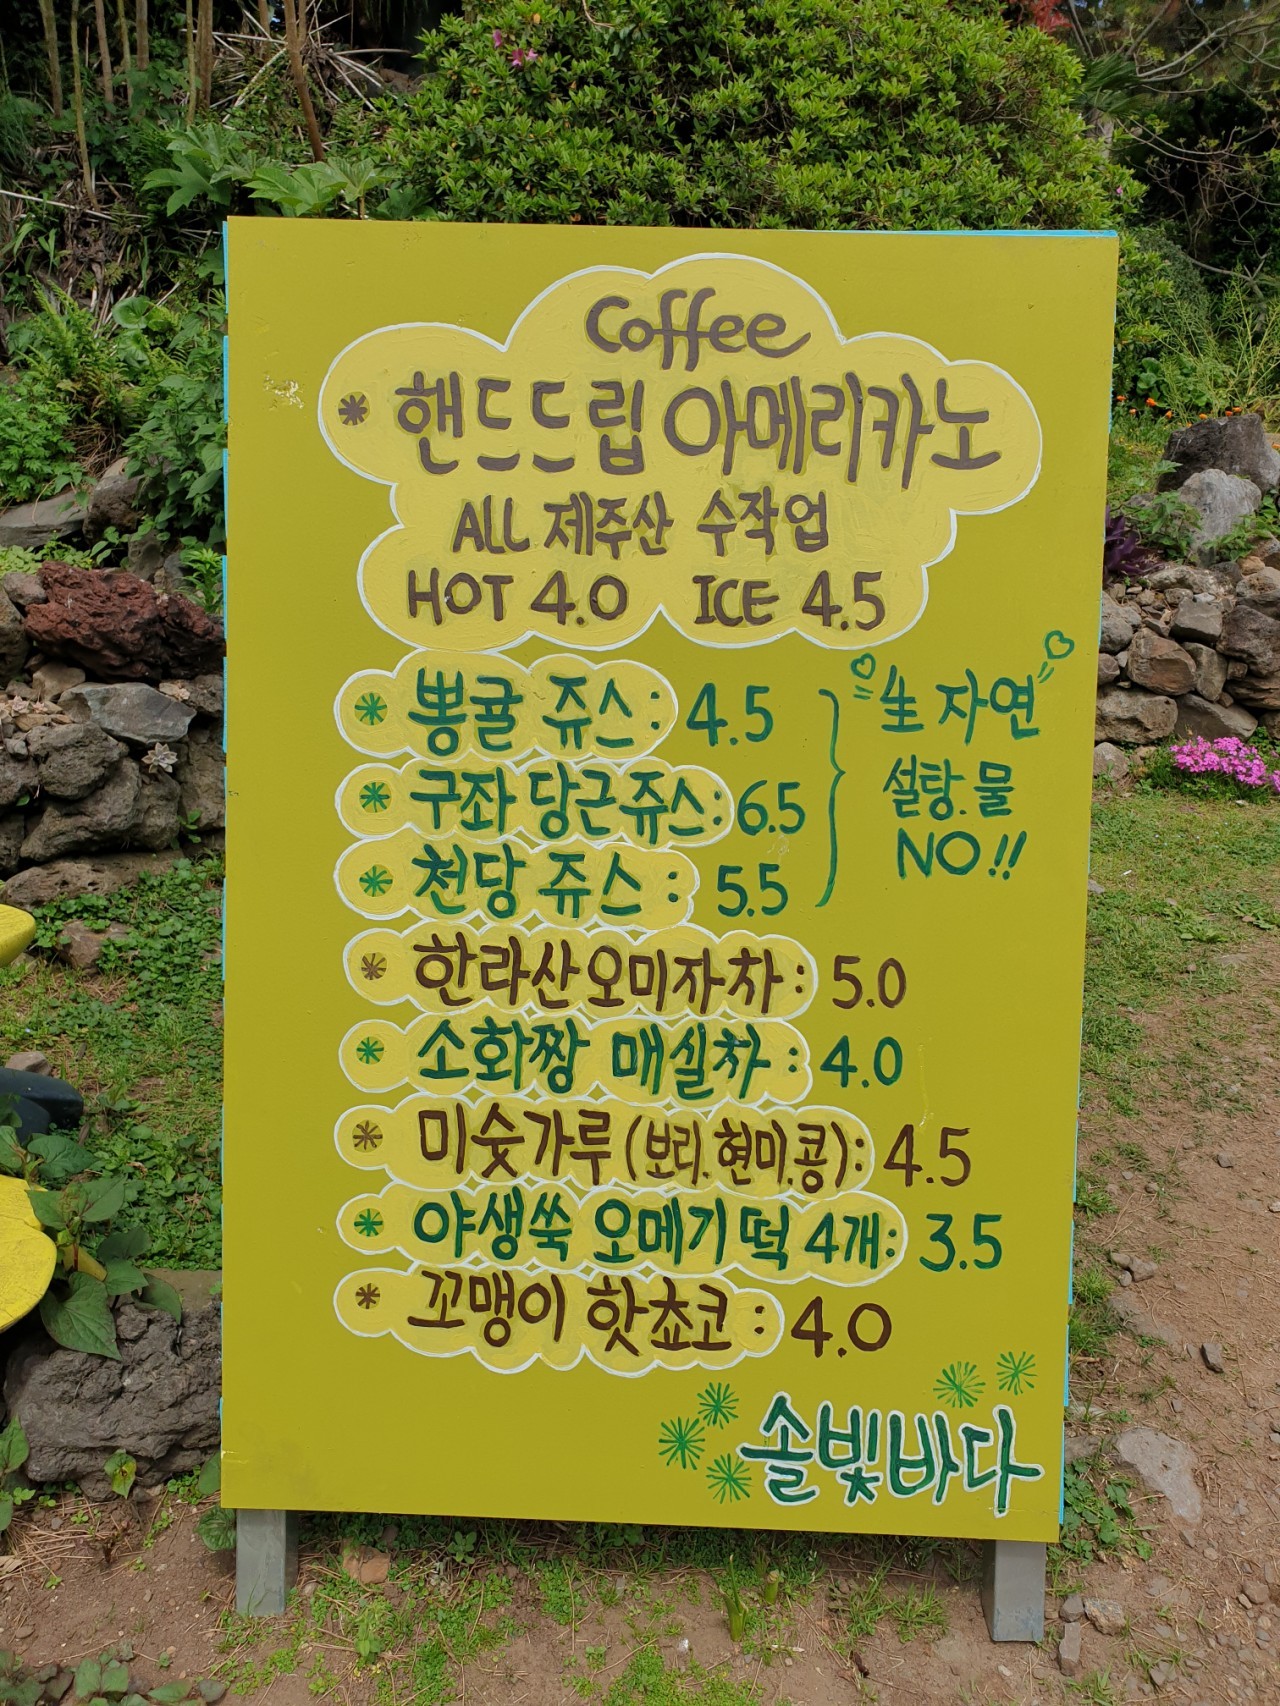 Coffee
핸드드립 아메리카노
ALL 제주산 수작업
HOT 4.0 ICE 4.5
뽕귤 쥬스: 4.5
구좌 당근쥬스: 6.5
천당 쥬스: 5.5
生 자연
설탕.물
NO!!
한라산오미자차: 5.0
소화짱 매실차: 4.0
미숫가루(보리.현미.콩): 4.5
야생쑥 오메기떡 4개: 3.5
꼬맹이 핫쵸코: 4.0
솔빛바다